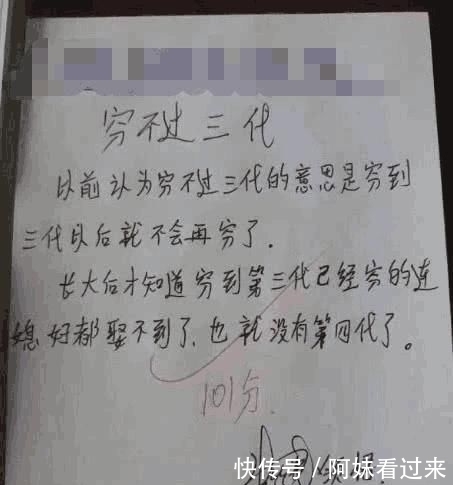 穷不过三代
以前认为穷不过三代的意思是穷到
三代以后就不会再穷了.
长大后才知道穷到第三代已经穷的连
媳妇都娶不到了,也就没有第四代了。
101分
快传号/阿妹看过来